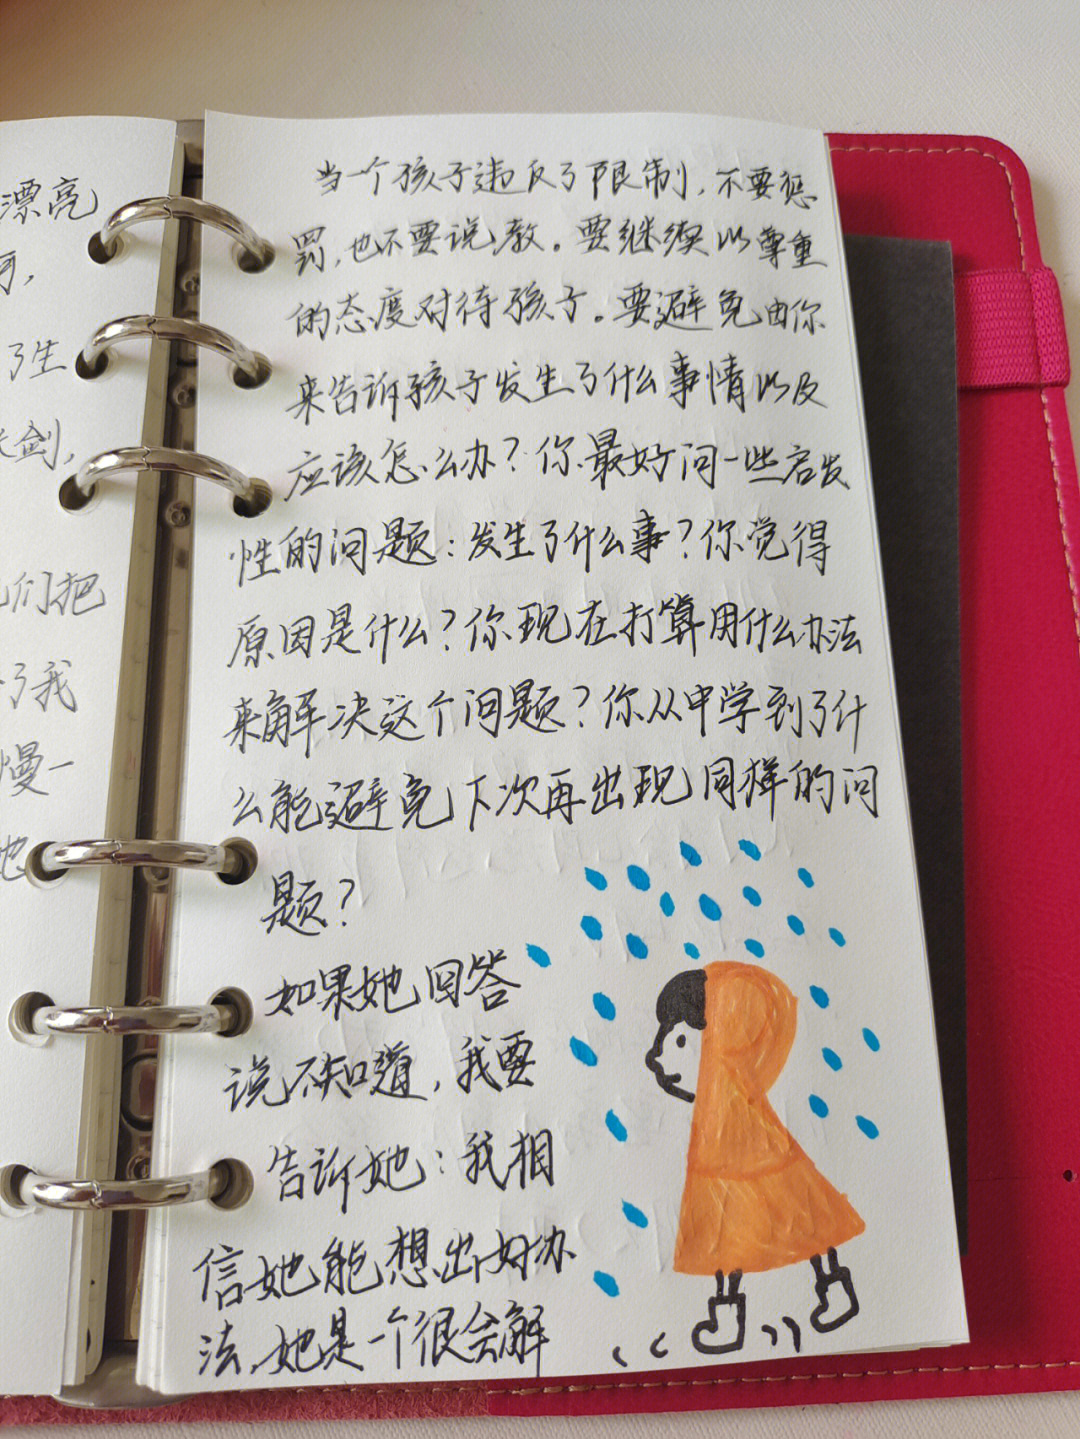 漂亮
了生
剑,
们把
了我
慢一
她
当一个孩子违反了限制，不要惩
罚，也不要说教。要继续以尊重
的态度对待孩子。要避免由你
来告诉孩子发生了什么事情以及
应该怎么办？你最好问一些启发
性的问题：发生了什么事？你觉得
原因是什么？你现在打算用什么办法
来解决这个问题？你从中学到了什
么能避免下次再出现同样的问
题？
如果她回答
说不知道，我要
告诉她：我相
信她能想出好办
法，她是一个很会解